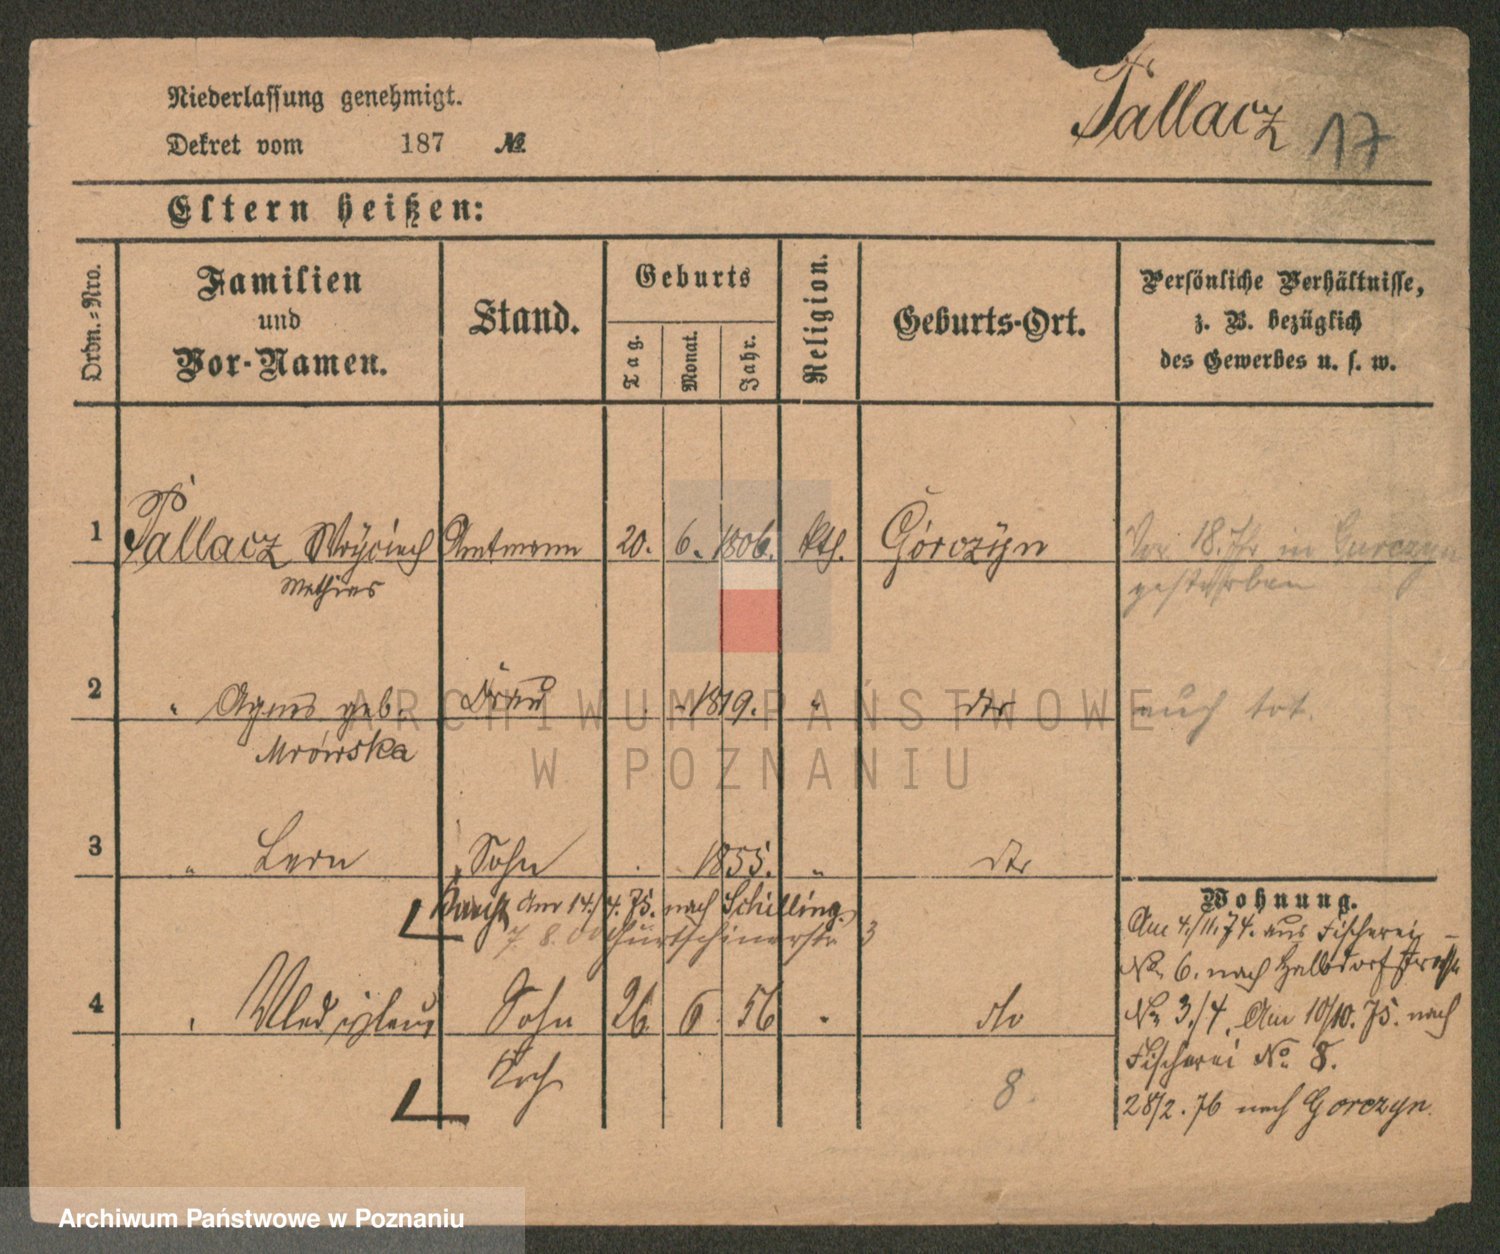 Niederlassung genehmigt.
Dekret vom 187 №
Tallacz 17
Eltern heißen:
Ordn.-Nro.
Familien und Vor-Namen.
Stand.
Geburts
Tag.
Monat.
Jahr.
Religion.
Geburts-Ort.
Persönliche Verhältnisse,
z. B. bezüglich
des Gewerbes u. s. w.
1 Tallacz Woyciech Amtmann 20. 6. 1806. kth. Górczyn Vor 18 in Gurczyn
Mathias gestorben
2 " Agnes geb. Frau 1819. " dto auch tot.
Mrówska
3 " Leon Sohn 1855. " dto
Wohnung.
Am 14./4. 75. nach Schilling.
7. 8. 3
Am 4./11. 74. aus Fischerei
No 6. nach Halbdorfstrasse
4 Sohn 26. 6. 56 " dto
No 3/4. Am 10/10. 75. nach
Fischerei No. 8.
Koch
8.
28/2. 76 nach Gorczyn.
ARCHIWUM PAŃSTWOWE
W POZNANIU
Archiwum Państwowe w Poznaniu